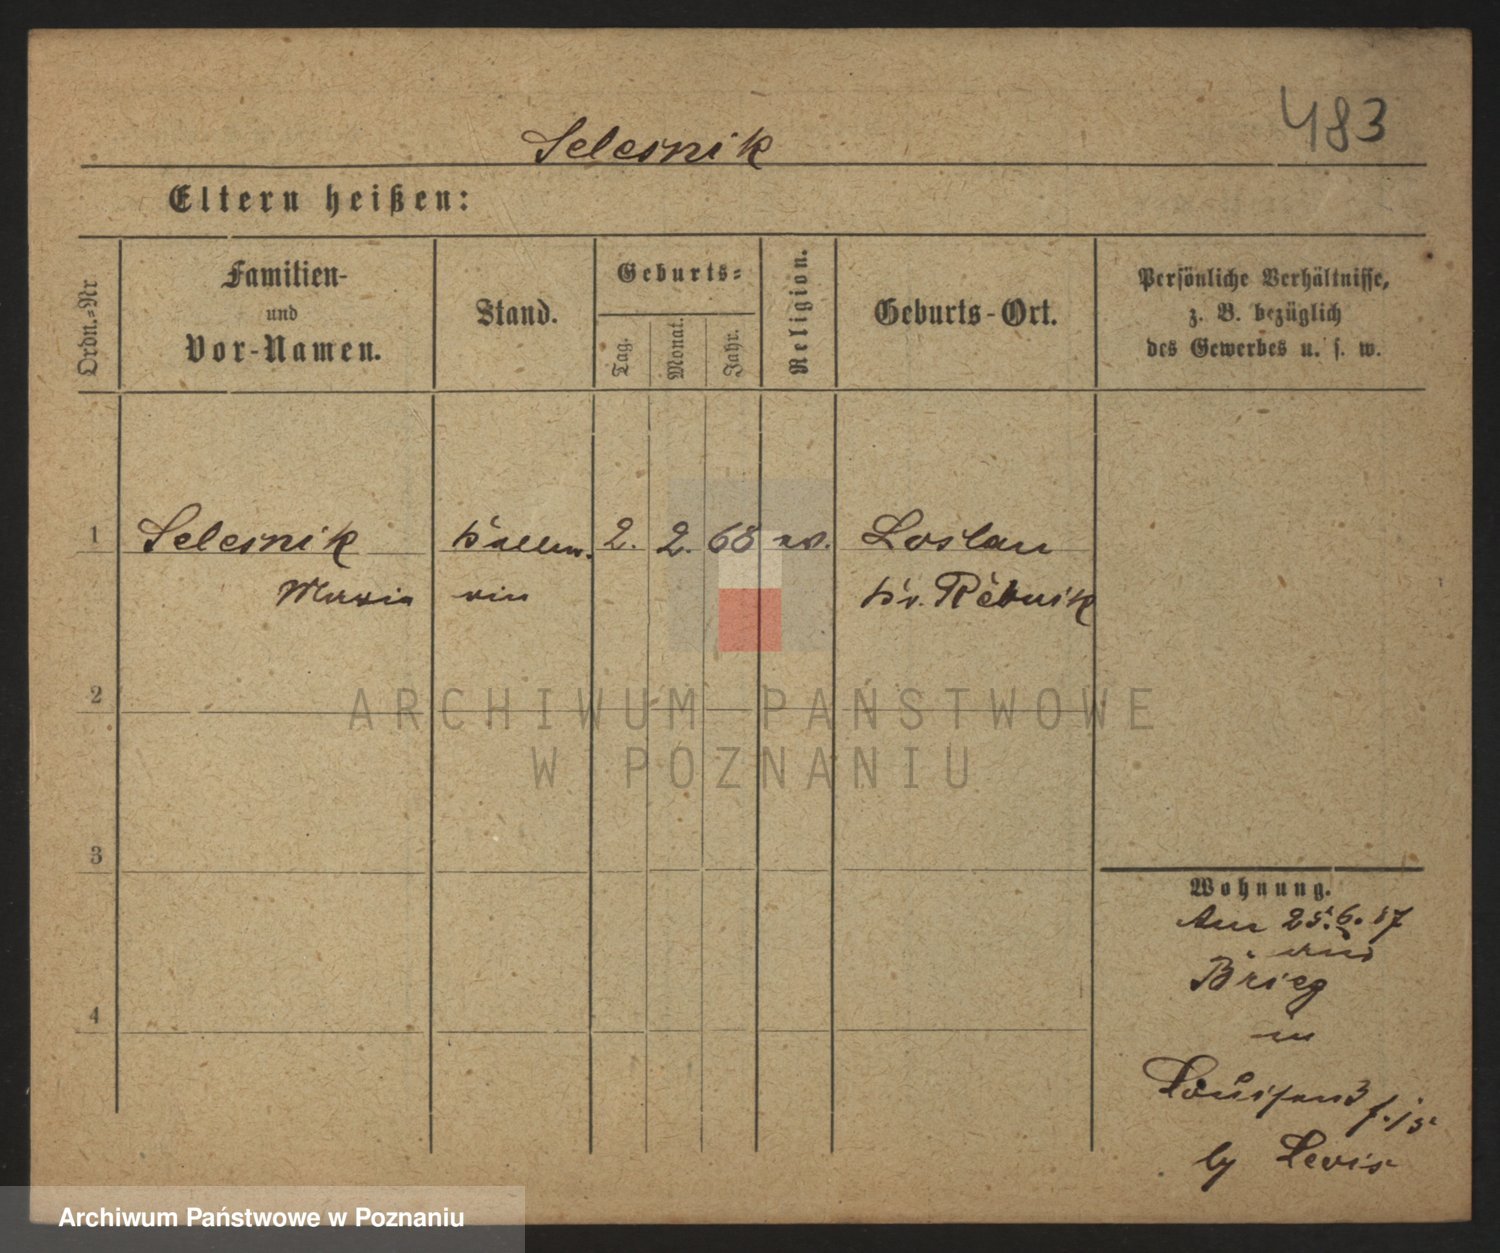 483
Selesnik
Eltern heißen:
Ordn.-Nr
Familien-
und
Vor-Namen.
Stand.
Geburts-
Tag.
Monat.
Jahr.
Religion.
Geburts-Ort.
Persönliche Verhältnisse,
z. B. bezüglich
des Gewerbes u. s. w.
1
Selesnik
Maria
Kellne-
rin
2. 2. 68
Loslau
Kr. Rybnik
2
3
4
Wohnung.
Am 25.6.87
aus
Brieg
in
Louisen 3
by Levis
ARCHIWUM PAŃSTWOWE
W POZNANIU
Archiwum Państwowe w Poznaniu